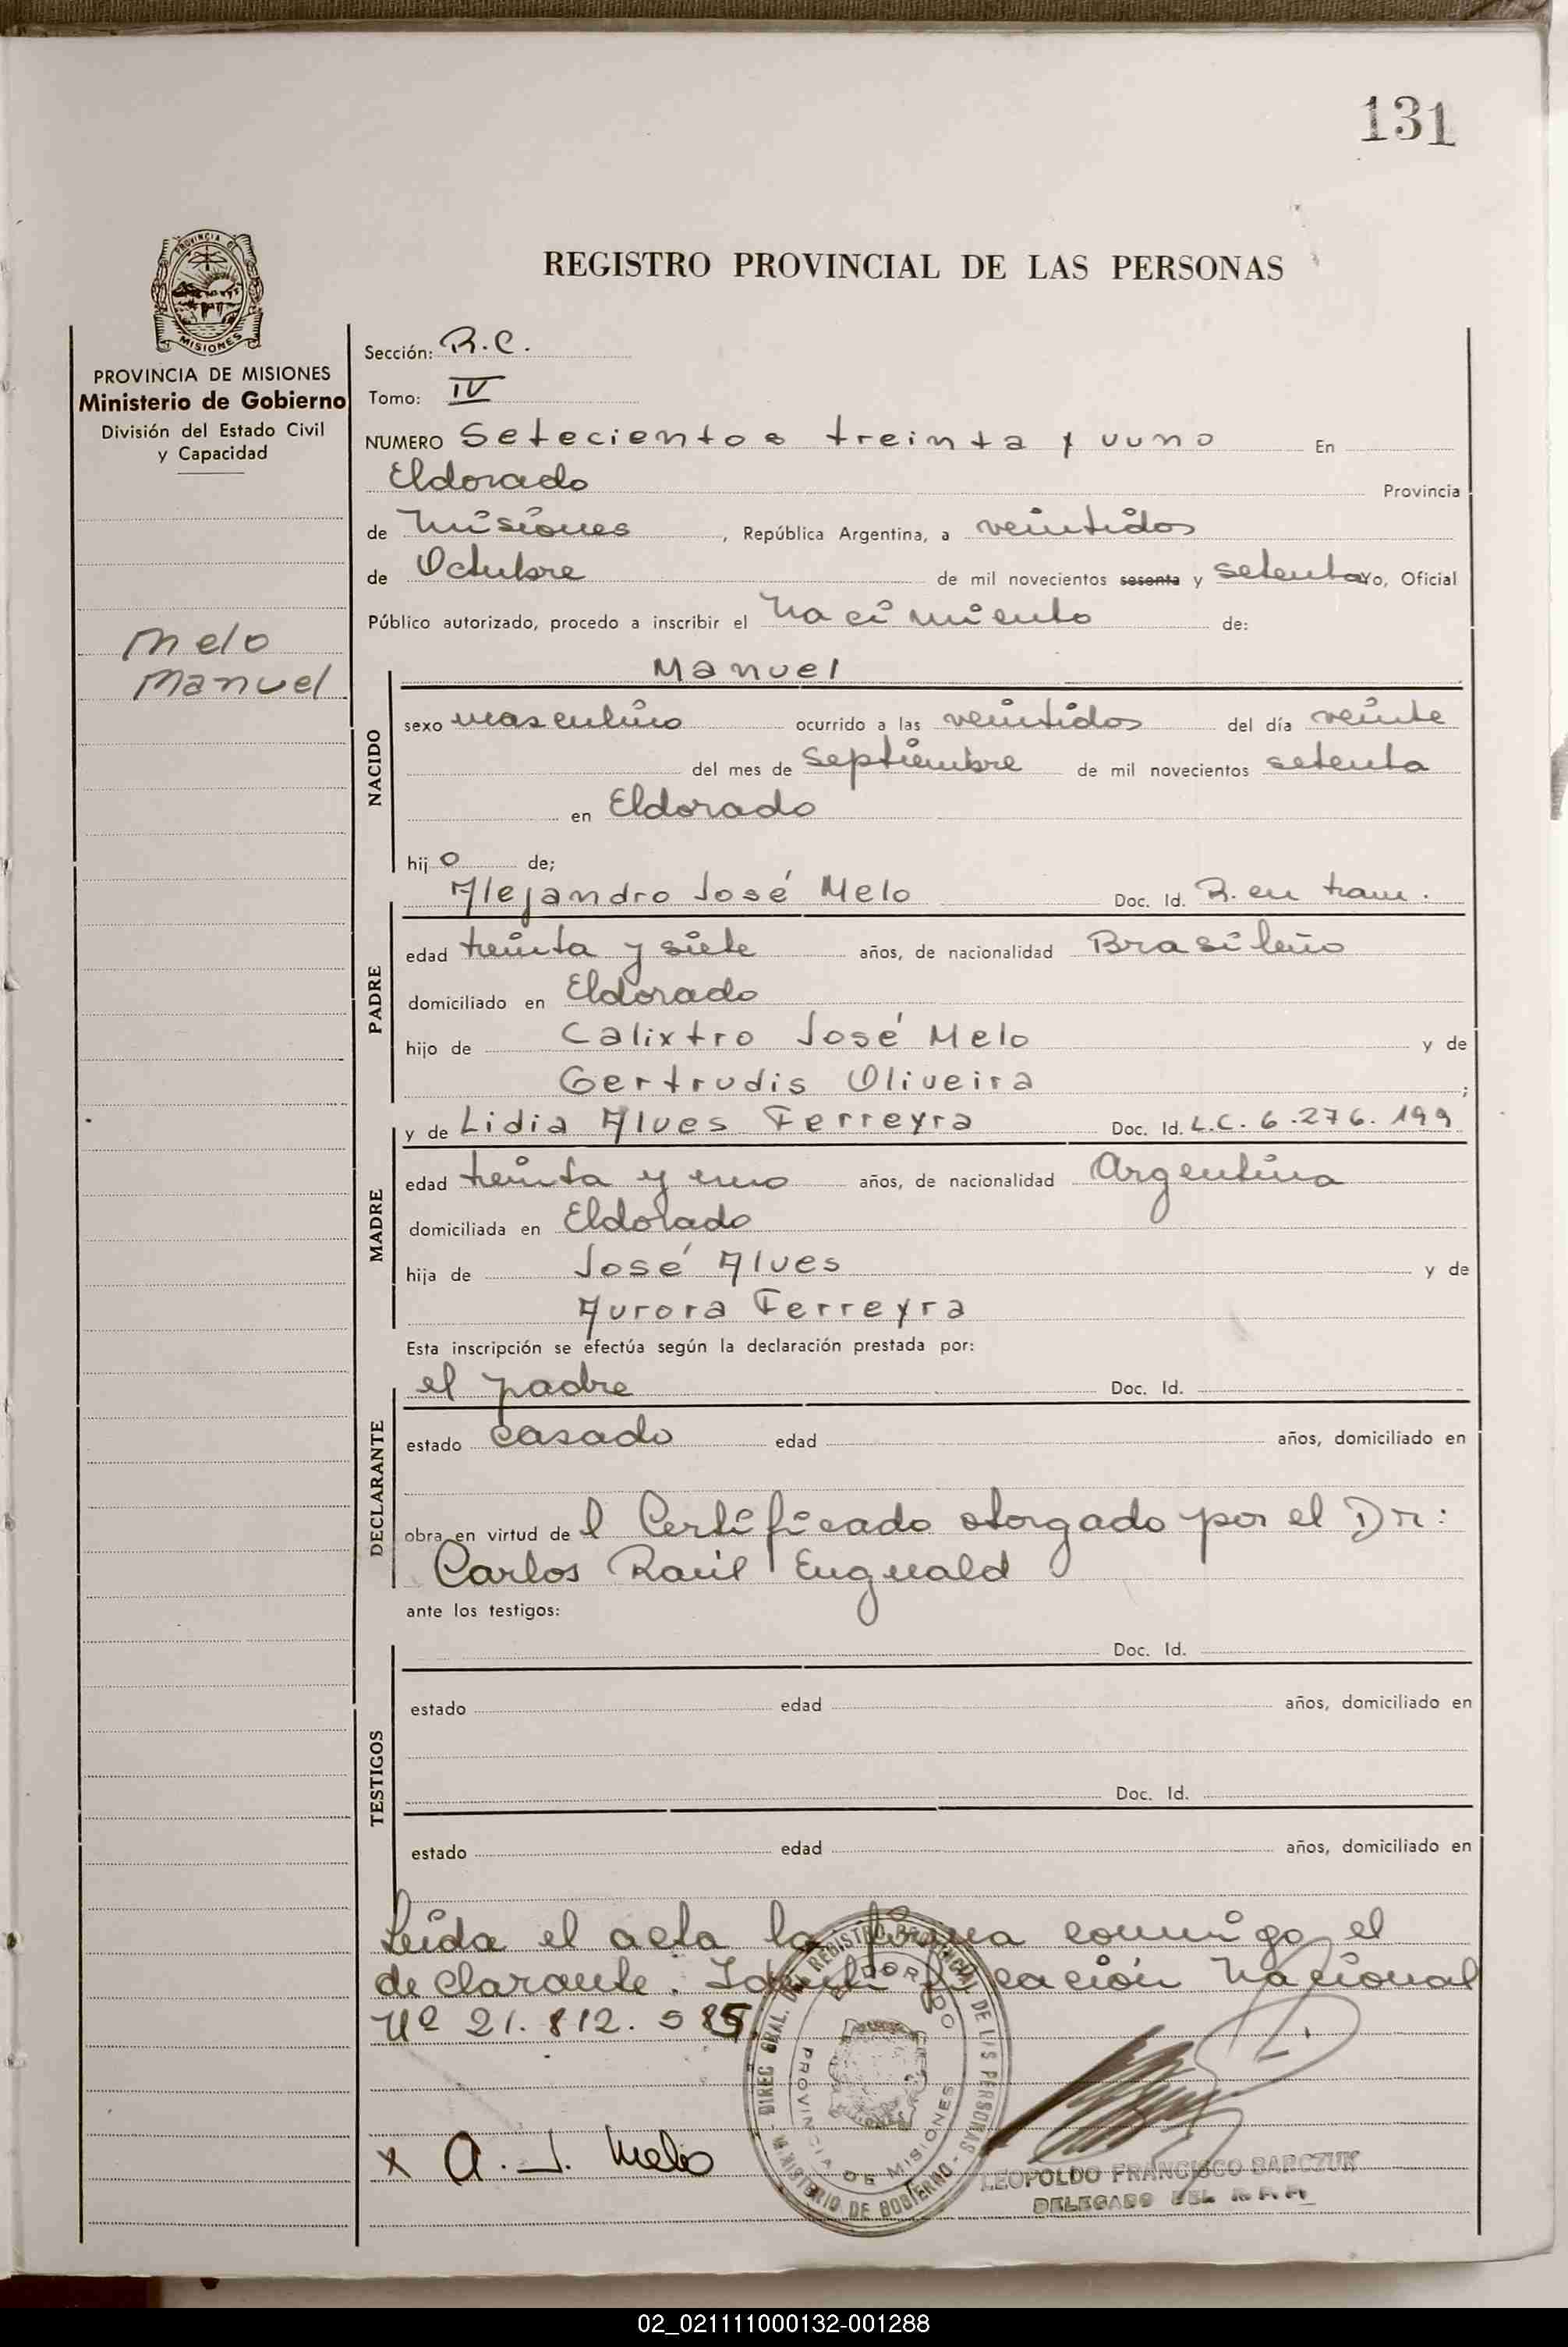 131
PROVINCIA DE
MISIONES
REGISTRO PROVINCIAL DE LAS PERSONAS
PROVINCIA DE MISIONES
Ministerio de Gobierno
División del Estado Civil
y Capacidad
Melo
Manuel
Sección: R.C.
Tomo: IV
NUMERO Setecientos treinta y uuno En
Eldorado Provincia
de Misiones, República Argentina, a veintidos
de Octubre de mil novecientos sesenta y setenta Yo, Oficial
Público autorizado, procedo a inscribir el Nacimiento de:
NACIDO
Manuel
sexo masculino ocurrido a las veintidos del día veinte
del mes de septiembre de mil novecientos setenta
en Eldorado
hijo de;
PADRE
Alejandro José Melo Doc. Id. R. en tram.
edad treinta y siete años, de nacionalidad Brasileño
domiciliado en Eldorado
hijo de Calixtro José Melo y de
Gertrudis Oliveira ;
MADRE
y de Lidia Alves Ferreyra Doc. Id. L.C. 6.276.199
edad treinta y uno años, de nacionalidad Argentina
domiciliada en Eldorado
hija de José Alves y de
Aurora Ferreyra
Esta inscripción se efectúa según la declaración prestada por:
DECLARANTE
el padre Doc. Id.
estado casado edad años, domiciliado en
obra en virtud del Certificado otorgado por el Dr:
Carlos Raúl Enguald
ante los testigos:
TESTIGOS
Doc. Id.
estado edad años, domiciliado en
Doc. Id.
estado edad años, domiciliado en
Leída el acta la firma conmigo el
declarante. Identificación Nacional
Nº 21.812.585.
DIREC. GRAL. DEL REGISTRO PROVINCIAL DE LAS PERSONAS
MINISTERIO DE GOBIERNO
ELDORADO
PROVINCIA DE MISIONES
x A. J. Melo
LEOPOLDO FRANCISCO BARCZUK
DELEGADO DEL R.P.P.
02_021111000132-001288